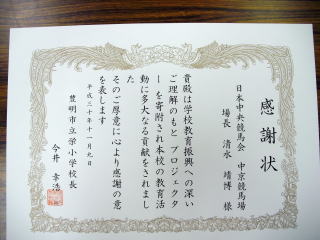 感謝状
日本中央競馬会　中京競馬場
場長　清水　靖博　様
貴殿は学校教育振興への深い
ご理解のもと　プロジェクタ
ーを寄附され本校の教育活
動に多大なる貢献をされまし
た
そのご厚意に心より感謝の意
を表します
平成三十年十一月九日
豊明市立栄小学校長
今井　幸浩